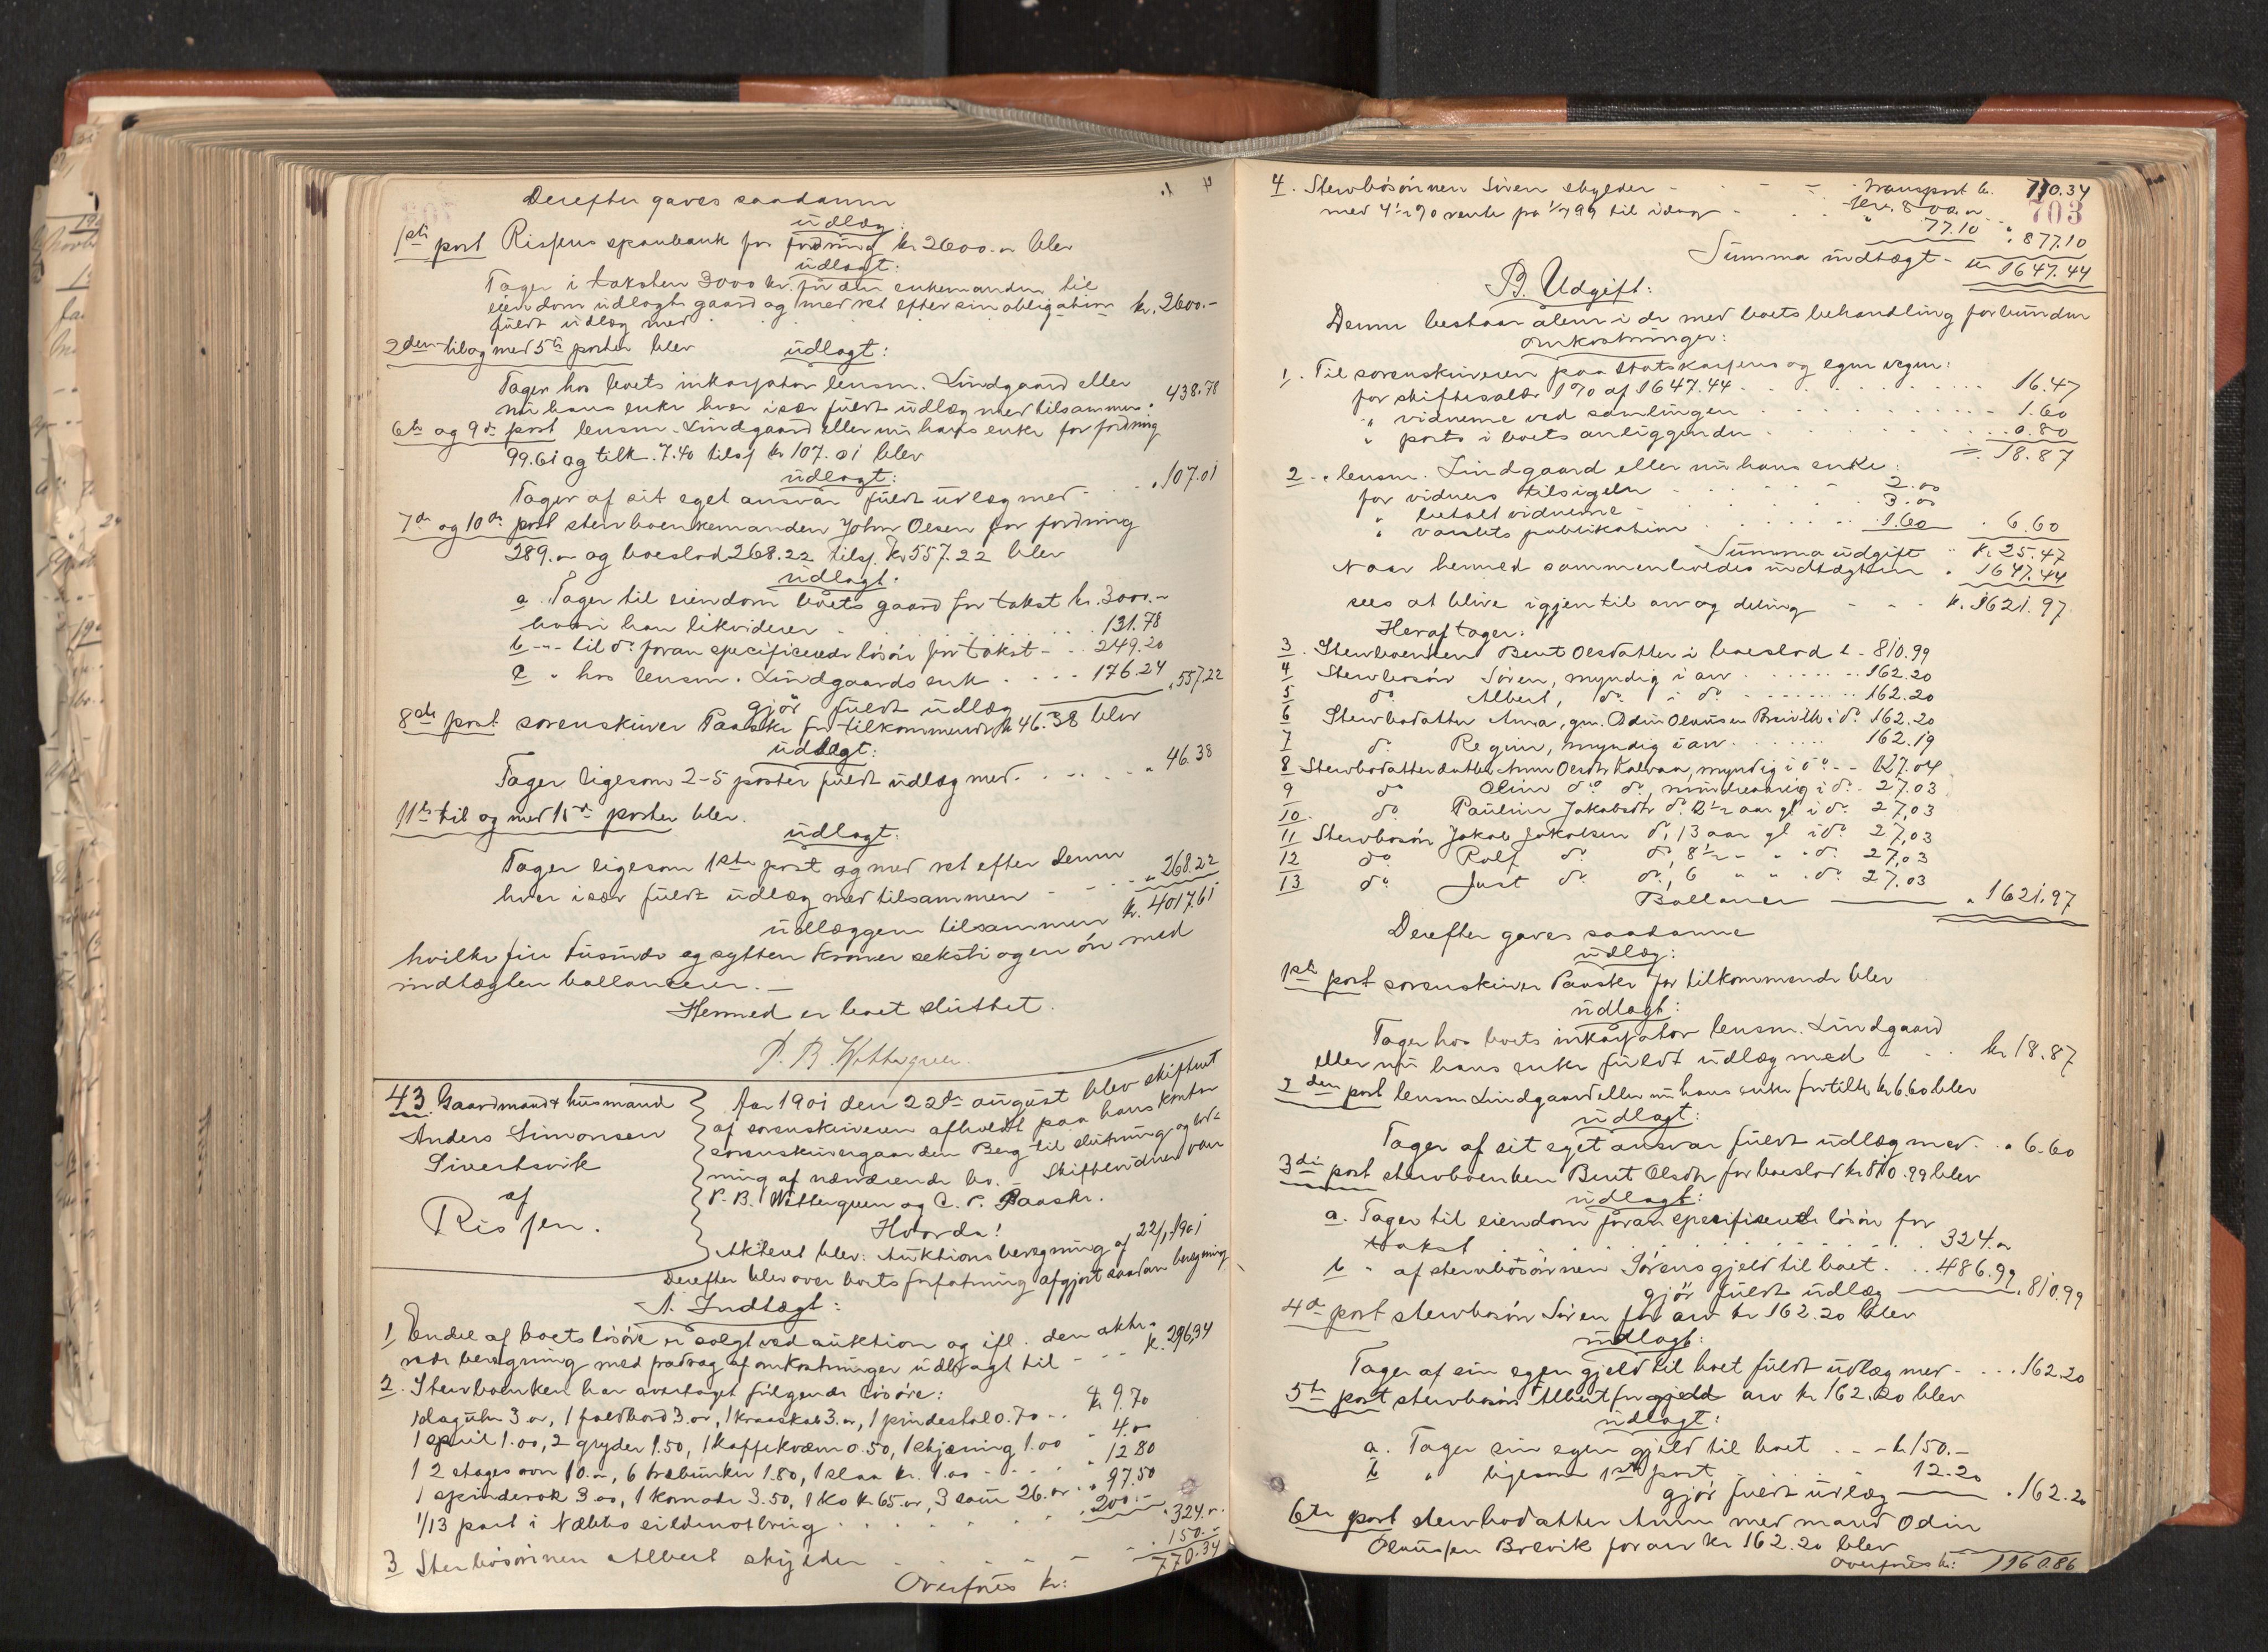 Derefter gaves saadanne
udlæg:
1ste post Rissens sparebank for fordring kr 2600.- blev
udlagt:
Tager i taksten 3000 kr. for den enkemanden til
eiendom udlagte gaard og med ret efter sin obligation
fuldt udlæg med . kr. 2600.-
2den til og med 5te poster blev udlagt:
Tager hos boets inkassator lensm. Lindgaard eller
nu hans enke hver især fuldt udlæg med tilsammen . 438.78
6te og 9de post lensm. Lindgaard eller nu hans enke for fordring
99.61 og tilk. 7.40 tils. kr 107.01 blev
udlagt:
Tager af sit eget ansvar fuldt udlæg med - . 107.01
7de og 10de post stervboenkemanden John Olsen for fordring
289.- og boeslod 268.22 tils. kr 557.22 blev
udlagt.
a. Tager til eiendom boets gaard for takst kr. 3000.-
hvori han likviderer . . . 131.78
b -"- til do foran specificerede løsøre for takst - . 249.20
c " hos lensm. Lindgaards enke . . . . 176.24
gjør fuldt udlæg . 557.22
8de post sorenskriver Paaske for tilkommende kr 46.38 blev
udlagt:
Tager ligesom 2-5 poster fuldt udlæg med . . . . " 46.38
11te til og med 15de poster blev.
udlagt:
Tager ligesom 1ste post og med ret efter denne
hver især fuldt udlæg med tilsammen - - . - " 268.22
udlæggene tilsammen kr. 4017.61
hvilke fire tusinde og sytten kroner seksti og en øre med
indtægten ballancerer. -
Hermed er boet sluttet.
P. B. Wettergreen.
43. Gaardmand & husmand
Anders Simonsen
Sivertsvik
af
Rissen.
Aar 1901 den 22de august blev skifteret
af sorenskriveren afholdt paa hans kontor
sorenskrivergaarden Berg til slutning og
ning af nærværende bo. - Skiftevidner var
P. B. Wettergreen og C. P. Paaske.
Hvorda!
Akteret blev: Auktionsberegning af 22/1 1901
Derefter blev over boets forfatning afgjort saadan beregning
A. Indtægt:
1, Endel af boets løsøre er solgt ved auktion og ifl. den akte-
rede beregning med fradrag af omkostninger udbragt til - - - k. 296,34
2. Stervboenken har overtaget følgende løsøre:
1 slaguhr 3.00, 1 foldbord 3.00, 1 kraaskab 3.00, 1 pindestol 0.70 . . kr 9.70
1 speil 1.00, 2 gryder 1.50, 1 kaffekværn 0.50, 1 skjæring 1.00 " 4.00
1 2 etages ovn 10.-, 6 træbunker 1.80, 1 slaa kr. 1.00 - . . . " 12.80
1 spinderok 3.00, 1 komode 3.50, 1 ko kr 65.00, 3 sauer 26.00 . " 97.50
1/13 part i Næbbo sildenotbrug . . . . . 200.- . 324.-
3 Stervbosønnen Albert skylder - . - - - - . 150.-
Overføres kr: 770.34
703
4. Stervbosønnen Søren skylder - - - - Transport kr. 770.34
med 4½ % rente pr 1/7 99 til idag - . . kr. 800.-
" 77.10 " 877.10
Summa indtægt - kr 1647.44
B. Udgift:
Denne bestaar alene i de med boets behandling forbundne
omkostninger:
1. Til sorenskriveren paa statskassens og egne vegne:
for skiftesalær 1% af 1647.44 . . . . . . . 16.47
" vidnerne ved samlingen . . . . . . 1.60
" porto i boets anliggender . . . . . . 0.80
= 18.87
2 - " lensm. Lindgaard eller nu hans enke:
for vidners tilsigelse - - - - - 2.00
" betalt vidnerne - . . . 3.00
" varslets publikation . . . . . 1.60 . 6.60
Summa udgift " k. 25.47
Naar hermed sammenholdes indtægten . 1647.44
sees at blive igjen til arv og deling - - - k. 1621.97
Heraf tager:
3. Stervboenken Berit Olsdatter i boeslod k - 810.99
4 Stervbosøn Søren, myndig i arv . . . . . . 162.20
5 do Albert, do i do - - - - - - 162.20
6 Stervbodatter Anna, gm. Odin Olaussen Brevik i do 162.20
7 do Regine, myndig i arv . . . . . . 162.19
8 Stervbodatterdatter Anne Olesdtr Kalvaa, myndig i do - - 27.04
9 do Oline do do, mindreaarig i do - 27.03
10. do Pauline Jakobsdtr do 12½ aar gl i do 27,03
11 Stervbosøn Jakob Jakobsen do, 13 aar gl i do 27,03
12 do Rolf do do, 8½ " " . do 27,03
13 do Just do do, 6 " " . do 27.03
Ballancer . 1621.97
Derefter gaves saadanne
udlæg:
1ste post sorenskriver Paaske for tilkommende blev
udlagt:
Tager hos boets inkassator lensm. Lindgaard
eller nu hans enke fuldt udlæg med - . . kr 18.87
2den post lensm Lindgaard eller nu hans enke for tilk kr 6.60 blev
udlagt:
Tager af sit eget ansvar fuldt udlæg med - . " 6.60
3die post stervboenken Berit Olsdtr for boeslod kr 810.99 blev
udlagt:
a. Tager til eiendom foran specificerede løsøre for
takst . . . . . . . . . 324.-
b " af stervbosønnen Sørens gjeld til boet . . . 486.99
gjør fuldt udlæg . 810.99
4de post stervbosøn Søren for arv kr 162.20 blev
udlagt:
Tager af sin egen gjeld til boet fuldt udlæg med - . . . 162.20
5te post stervbosøn Albert for gjeld arv kr 162.20 blev
udlagt:
a. Tager sin egen gjeld til boet . . - kr 150.-
b " ligesom 1ste post . . 12.20
gjør fuldt udlæg . 162.20
6te post stervbodatter Anne med mand Odin
Olaussen Brevik for arv kr 162.20 blev
Overføres kr: 1160.86